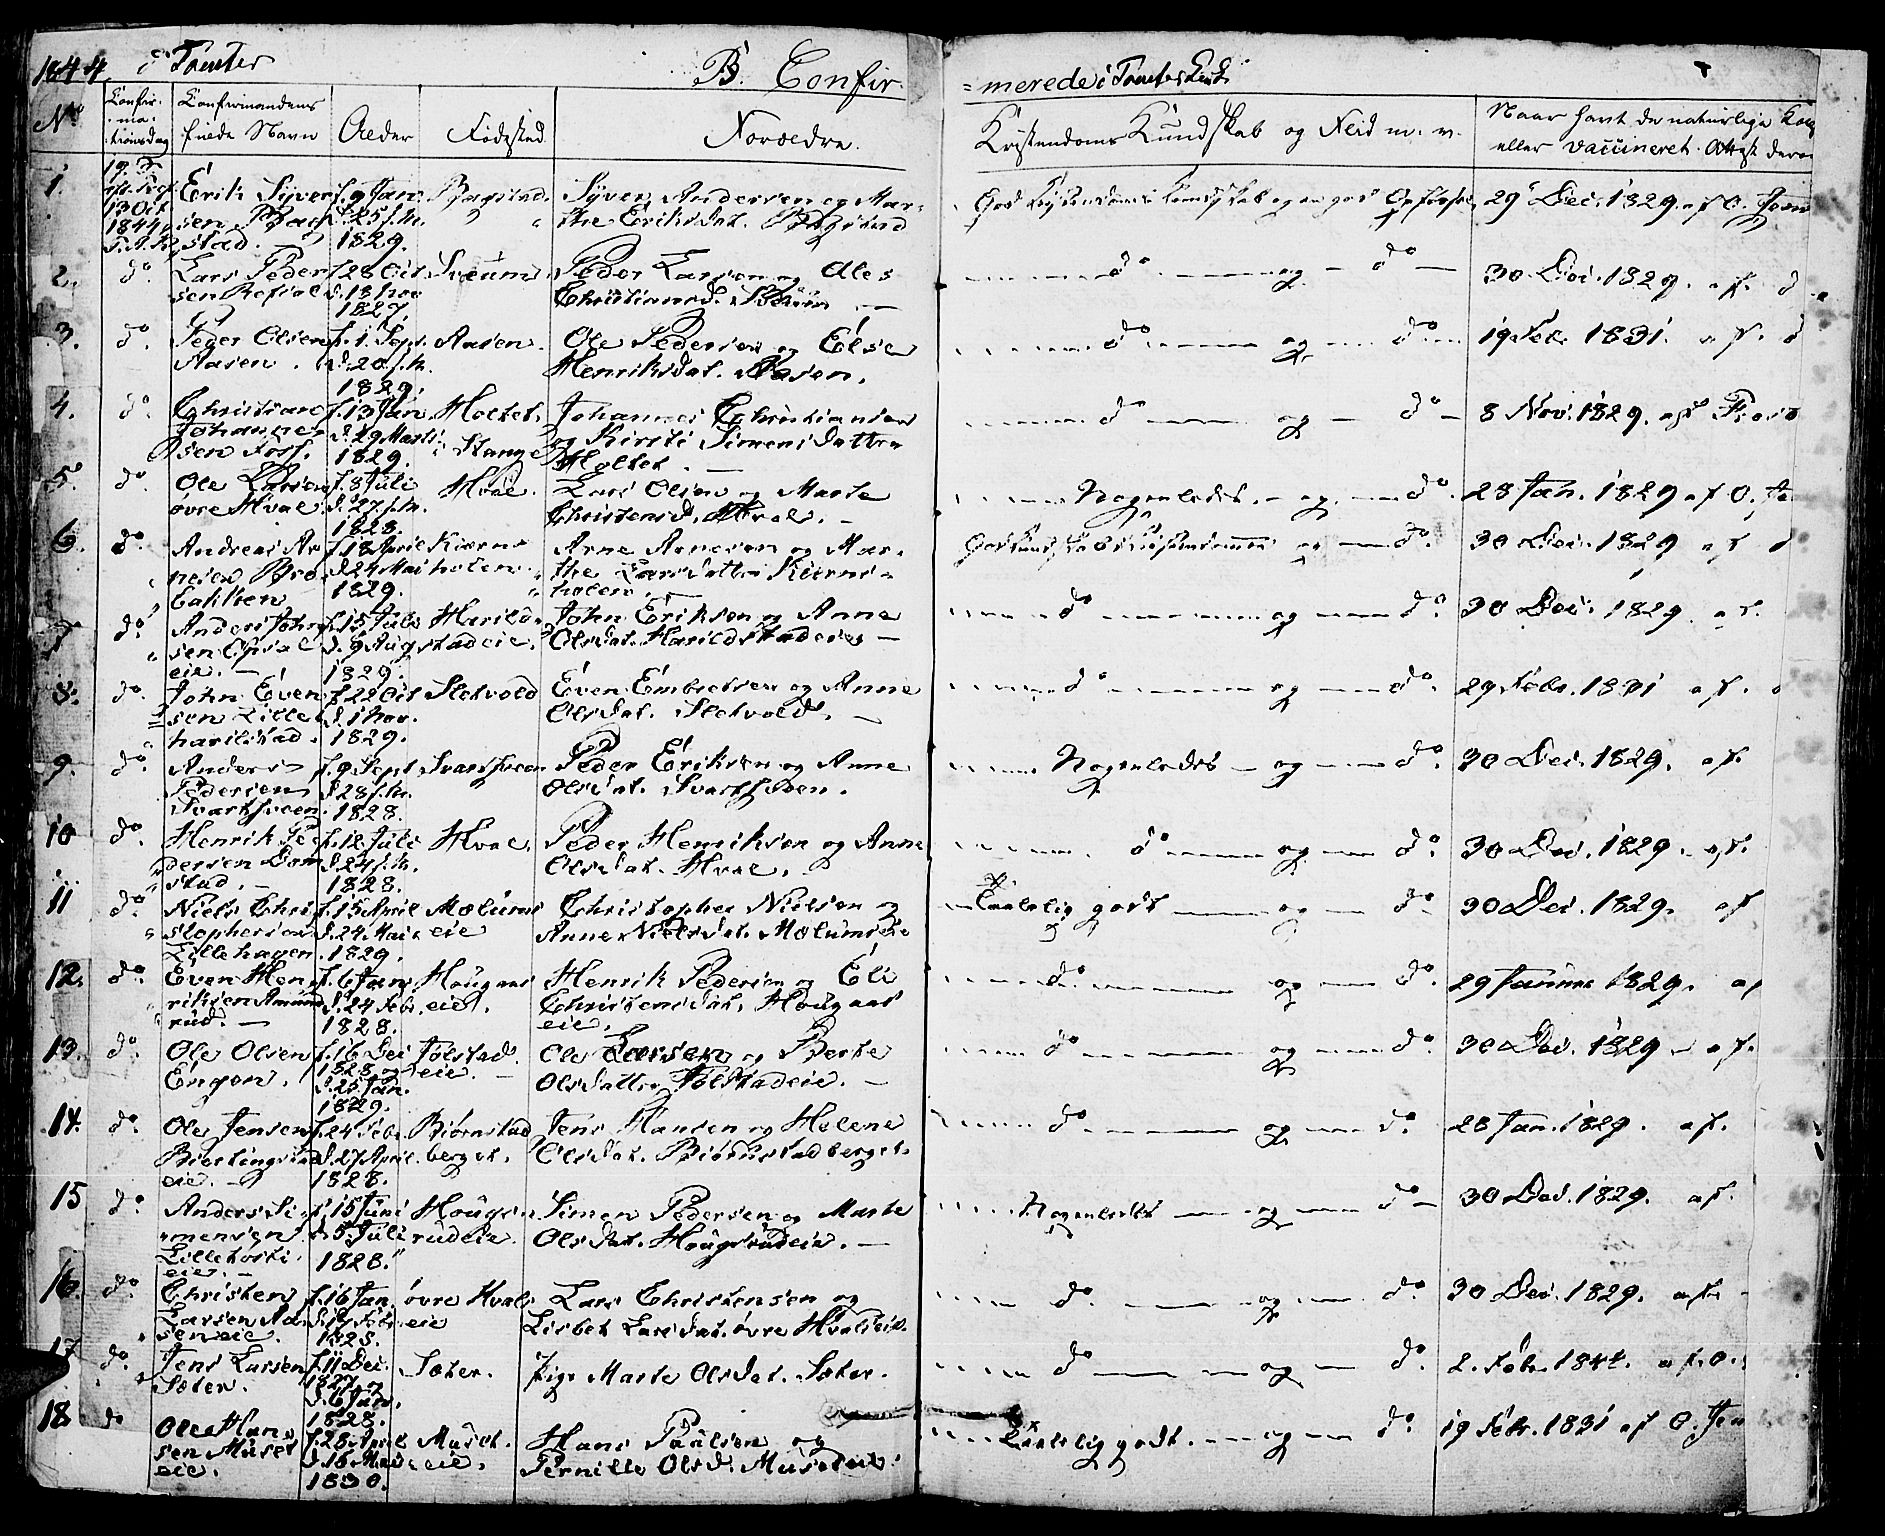 1844. i Tomter B. Confir-
=merede i Tomter Kirke
No Konfirmationsdag Konfirmandens fulde Navn Alder Fødested Forældre. Kristendoms Kundskab og Flid m. v. Naar havt de naturlige Kop eller vaccineret. Attest derom
1. 19. S. 13 Oct 1844.
Erik Syversen Bagstad. f. 9 Jan d. 25 s.m. 1829. Bagstad. Syver Andersen og Marthe Eriksdat. Bagstad God Kristendoms Kundskab og en god Opførsel 29 Dec. 1829. af O.
2. do. Lars Pedersen f. 28 Oct d. 13 nov 1827. Svæum. Peder Larsen og Christiansd. do og do 30 Dec. 1829. af d
3. do. Peder Olsen Aasen. f. 1. Sept. d. 20 s.m. 1829. Aasen. Ole Pedersen og Else Henriksdat. Aasen. do og do 19 Feb. 1831. af. d
4. do. Christian Johannessen f. 13 Jan. d. 29 Marts 1829. Holtet, i Stange Johannes Christiansen og Kirsti Simensdatter Holtet. do og do 8 Nov. 1829. af
5. do. Ole Larsen øvre Hval. f. 8 Juli d. 27 s.m. 1828. Hval. Lars Olsen og Marte Christensd. Hval. Nogenledes og do. 28 Jan. 1829 af O.
6. do. Andreas Arnesen f. 18 April d. 24 Mai 1829. Kiærnsholen. Arne Arnesen og Marthe Larsdatter Kiernsholen. God Kundskab i Kristendommen og do. 30 Dec. 1829 af
7 do. Anders Johnsen Opsal eie. f. 15 Juli d. 9 Aug 1829. Harildstadeie. John Eriksen og Anne Olsdat. Harildstadeie do og do 30 Dec. 1829. af.
8. do. John Evensen Lilleharilstad. f. 22 Oct d. 1 nov. 1829. Sletvold Even Embretsen og Anne Olsdat. Sletvold. do og do. 29 Febr. 1831 af.
9. do. Anders Pedersen Svartsveen. f. 9 Sept d. 28 s.m. 1828. Svartsveen Peder Eriksen og Anne Olsdat. Svartsveen. Nogenledes og do. 30 Dec. 1829. af.
10 do. Henrik Pedersen Domstad. f. 12 Juli d. 24 s.m. 1828. Hval. Peder Henriksen og Anne Olsdat. Hval. do og do. 30 Dec. 1829. af.
11 do. Niels Christophersen Lillehagen. f. 15 April d. 24 Mai 1829. Mælumseie Christopher Nielsen og Anne Nielsdat. Mælumseie Taalelig godt og do. 30 Dec. 1829. af
12. do. Even Henriksen Amundrud. f. 6 Jan d. 24 Febr. 1828. Hougaaseie. Henrik Pedersen og Eli Christensdat. Hougaaseie. do. og do. 29 Januar 1829. af
13. do. Ole Olsen Engen. f. 16 Dec 1828 og d. 25 Jan. 1829. Tolstadeie. Ole Larsen og Berte Olsdatter Tolstadeie. do og do. 30 Dec. 1829 af.
14. do. Ole Jensen eie. f. 24 Febr. d. 27 April. 1828. Biørnstadberget. Jens Hansen og Helene Olsdat. Biørnstadberget. do. og do. 28 Jan. 1829. af.
15 do Anders Simensen eie. f. 15 Juni d. 5 Juli 1828. Hougsrudeie. Simen Pedersen og Marte Olsdat. Hougsrudeie. Nogenledes og do 30 Dec. 1829. af.
16. do. Christen Larsen Aaseneie. f. 16 Jan. 1828. øvre Hvalseie Lars Christensen og Lisbet Larsdat. øvre Hvalseie. do. og do 30 Dec. 1829. af.
17 do. Jens Larsen Sæter. f. 11 Dec. 1827 og d. 6 Jan. 1828. Sæter. Pige Marte Olsdat. Sæter. do og do. 2. Febr. 1844. af. O.
18 do Ole Hansen Muset eie. f. 28 April d. 16 Mai 1830. Museteie. Hans Paulsen og Pernille Olsd. Museteie. Taalelig godt. og do. 19 Febr. 1831 af O.